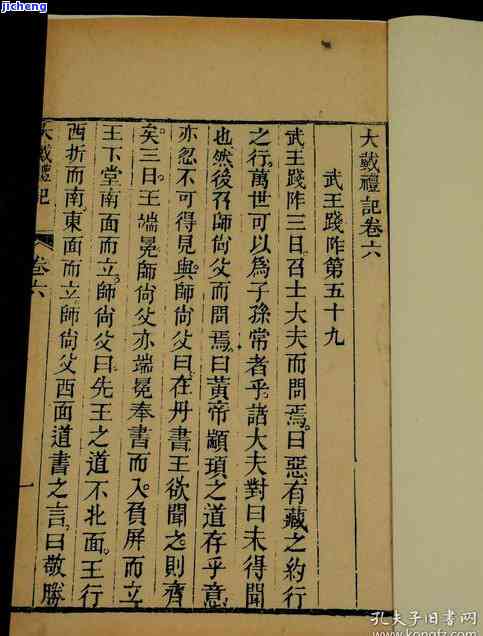 jicheng
大戴禮記卷六
武王踐阼第五十九
武王踐阼三日召士大夫而問焉曰惡有藏之約行
之行萬世可以爲子孫常者乎諸大夫對曰未得聞
也然後召師尙父而問焉曰黃帝顓頊之道存乎意
亦忽不可得見與師尙父曰在丹書王欲聞之則齊
矣三日王端冕師尙父亦端冕奉書而入負屏而立
王下堂南面而立師尙父曰先王之道不北面王行
西折而南東面而立師尙父西面道書之言曰敬勝
大戴禮記
卷六
一
孔夫子旧书网
www.kongfz.com